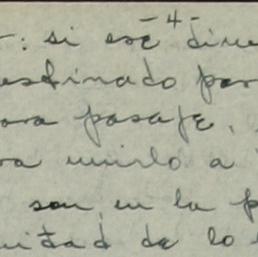 -4-
: si ese dine
estinado par
ara pasaje.
ra unirlo a
son en la p
nidad de lo